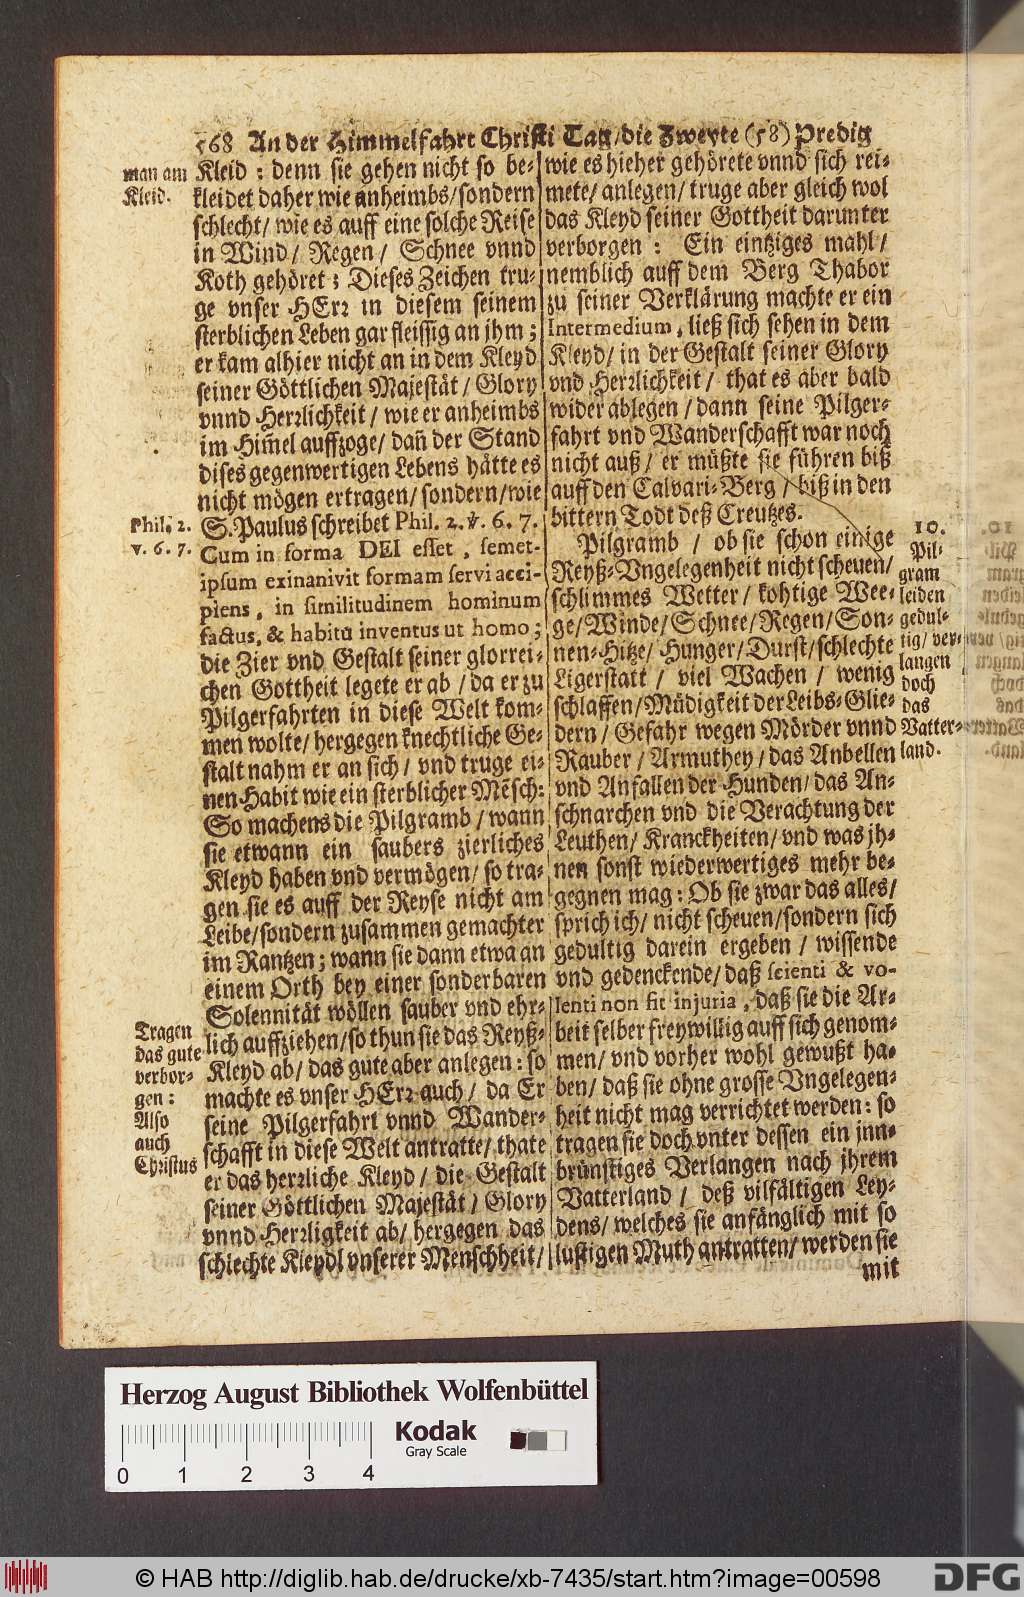 568 An der Himmelfahrt Christi Tag/die Zweyte (58) Predig
man am
Kleid.
Kleid : denn sie gehen nicht so be-
kleidet daher wie anheimbs/sondern
schlecht/ wie es auff eine solche Reise
in Wind/ Regen/ Schnee vnnd
Koth gehöret; Dieses Zeichen tru-
ge vnser HErr in diesem seinem
sterblichen Leben gar fleissig an jhm;
er kam alhier nicht an in dem Kleyd
seiner Göttlichen Majestät/ Glory
vnnd Herrlichkeit/ wie er anheimbs
im Him̃el auffzoge/ dañ der Stand
dises gegenwertigen Lebens hätte es
nicht mögen ertragen/ sondern/wie
Phil. 2.
v. 6. 7.
S. Paulus schreibet Phil. 2. v. 6. 7.
Cum in forma DEI esset, semet-
ipsum exinanivit formam servi acci-
piens, in similitudinem hominum
factus, & habitu inventus ut homo;
die Zier vnd Gestalt seiner glorrei-
chen Gottheit legete er ab/ da er zu
Pilgerfahrten in diese Welt kom-
men wolte/ hergegen knechtliche Ge-
stalt nahm er an sich/ vnd truge ei-
nen Habit wie ein sterblicher Mẽsch:
So machens die Pilgramb/ wann
sie etwann ein saubers zierliches
Kleyd haben vnd vermögen/ so tra-
gen sie es auff der Reyse nicht am
Leibe/sondern zusammen gemachter
im Rantzen; wann sie dann etwa an
einem Orth bey einer sonderbaren
Solennität wöllen sauber vnd ehr-
Tragen
das gute
verbor-
gen:
Also
auch
Christus
lich auffziehen/so thun sie das Reyß-
Kleyd ab/ das gute aber anlegen: so
machte es vnser HErr auch/ da Er
seine Pilgerfahrt vnnd Wander-
schafft in diese Welt antratte/ thate
er das herrliche Kleyd/ die Gestalt
seiner Göttlichen Majestät/ Glory
vnnd Herrligkeit ab/ hergegen das
schlechte Kleydl vnserer Menschheit/
wie es hieher gehörete vnnd sich rei-
mete/ anlegen/ truge aber gleich wol
das Kleyd seiner Gottheit darunter
verborgen : Ein eintziges mahl/
nemblich auff dem Berg Thabor
zu seiner Verklärung machte er ein
Intermedium, ließ sich sehen in dem
Kleyd/ in der Gestalt seiner Glory
vnd Herrlichkeit/ that es aber bald
wider ablegen/ dann seine Pilger-
fahrt vnd Wanderschafft war noch
nicht auß/ er müßte sie führen biß
auff den Calvari-Berg/ biß in den
bittern Todt deß Creutzes.
10.
Pil-
gram
leiden
gedul-
tig/ ver-
langen
doch
das
Vatter-
land.
Pilgramb / ob sie schon einige
Reyß-Vngelegenheit nicht scheuen/
schlimmes Wetter/ kohtige Wee-
ge/Winde/Schnee/Regen/Son-
nen-Hitze/ Hunger/Durst/schlechte
Ligerstatt/ viel Wachen/ wenig
schlaffen/Müdigkeit der Leibs-Glie-
dern/ Gefahr wegen Mörder vnnd
Rauber/ Armuthey/ das Anbellen
vnd Anfallen der Hunden/ das An-
schnarchen vnd die Verachtung der
Leuthen/ Kranckheiten/ vnd was jh-
nen sonst wiederwertiges mehr be-
gegnen mag: Ob sie zwar das alles/
sprich ich/ nicht scheuen/sondern sich
gedultig darein ergeben/ wissende
vnd gedenckende/ daß scienti & vo-
lenti non fit injuria, daß sie die Ar-
beit selber freywillig auff sich genom-
men/ vnd vorher wohl gewußt ha-
ben/ daß sie ohne grosse Vngelegen-
heit nicht mag verrichtet werden: so
tragen sie doch vnter dessen ein jnn-
brünstiges Verlangen nach jhrem
Vatterland/ deß vilfältigen Ley-
dens/ welches sie anfänglich mit so
lustigen Muth antratten/ werden sie
mit
Herzog August Bibliothek Wolfenbüttel
Kodak
Gray Scale
0 1 2 3 4
© HAB http://diglib.hab.de/drucke/xb-7435/start.htm?image=00598
DFG